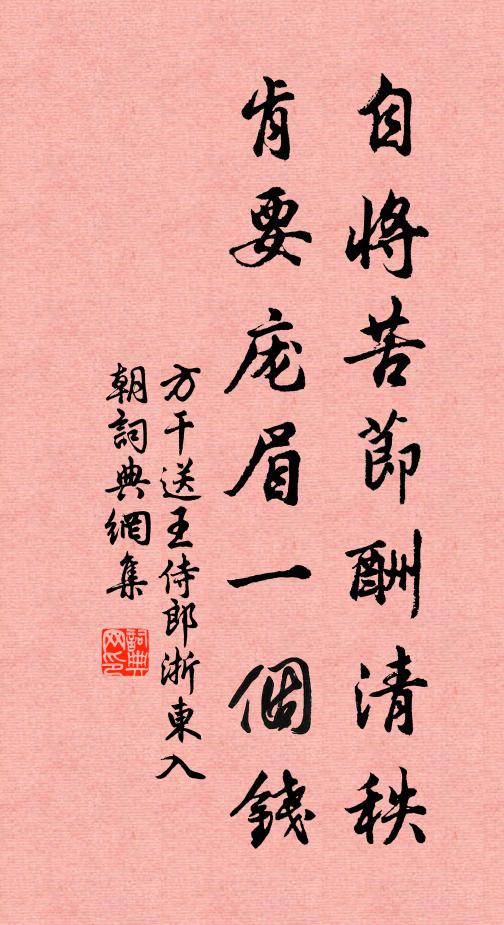 自將苦節酬清秩
肯要庞眉一個錢
方干送王侍郎浙東入
朝詞典網集
詞典网印